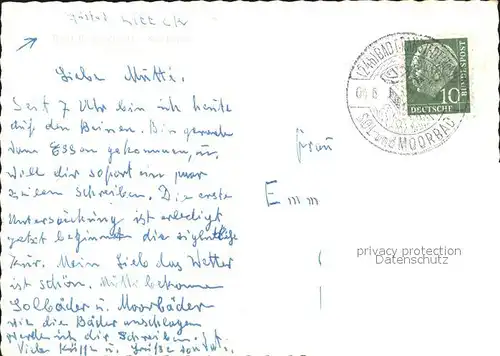 Liebe Mutti.
Seit 7 Uhr bin ich heute
auf den Beinen. Bin gerade
vom Essen gekommen, u.
will dir sofort ein paar
Zeilen schreiben. Die erste
Untersuchung ist erledigt
jetzt beginnt die eigentliche
Kur. Mein Lieb das Wetter
ist schön. Mutti bekomme
Solbäder u. Moorbäder
wie die Bäder anschlagen
werde ich dir schreiben.
Viele Küsse u. Grüße von
DEUTSCHE
BUNDESPOST
10
SOL- und MOORBAD
Frau
Emm
privacy protection
Datenschutz